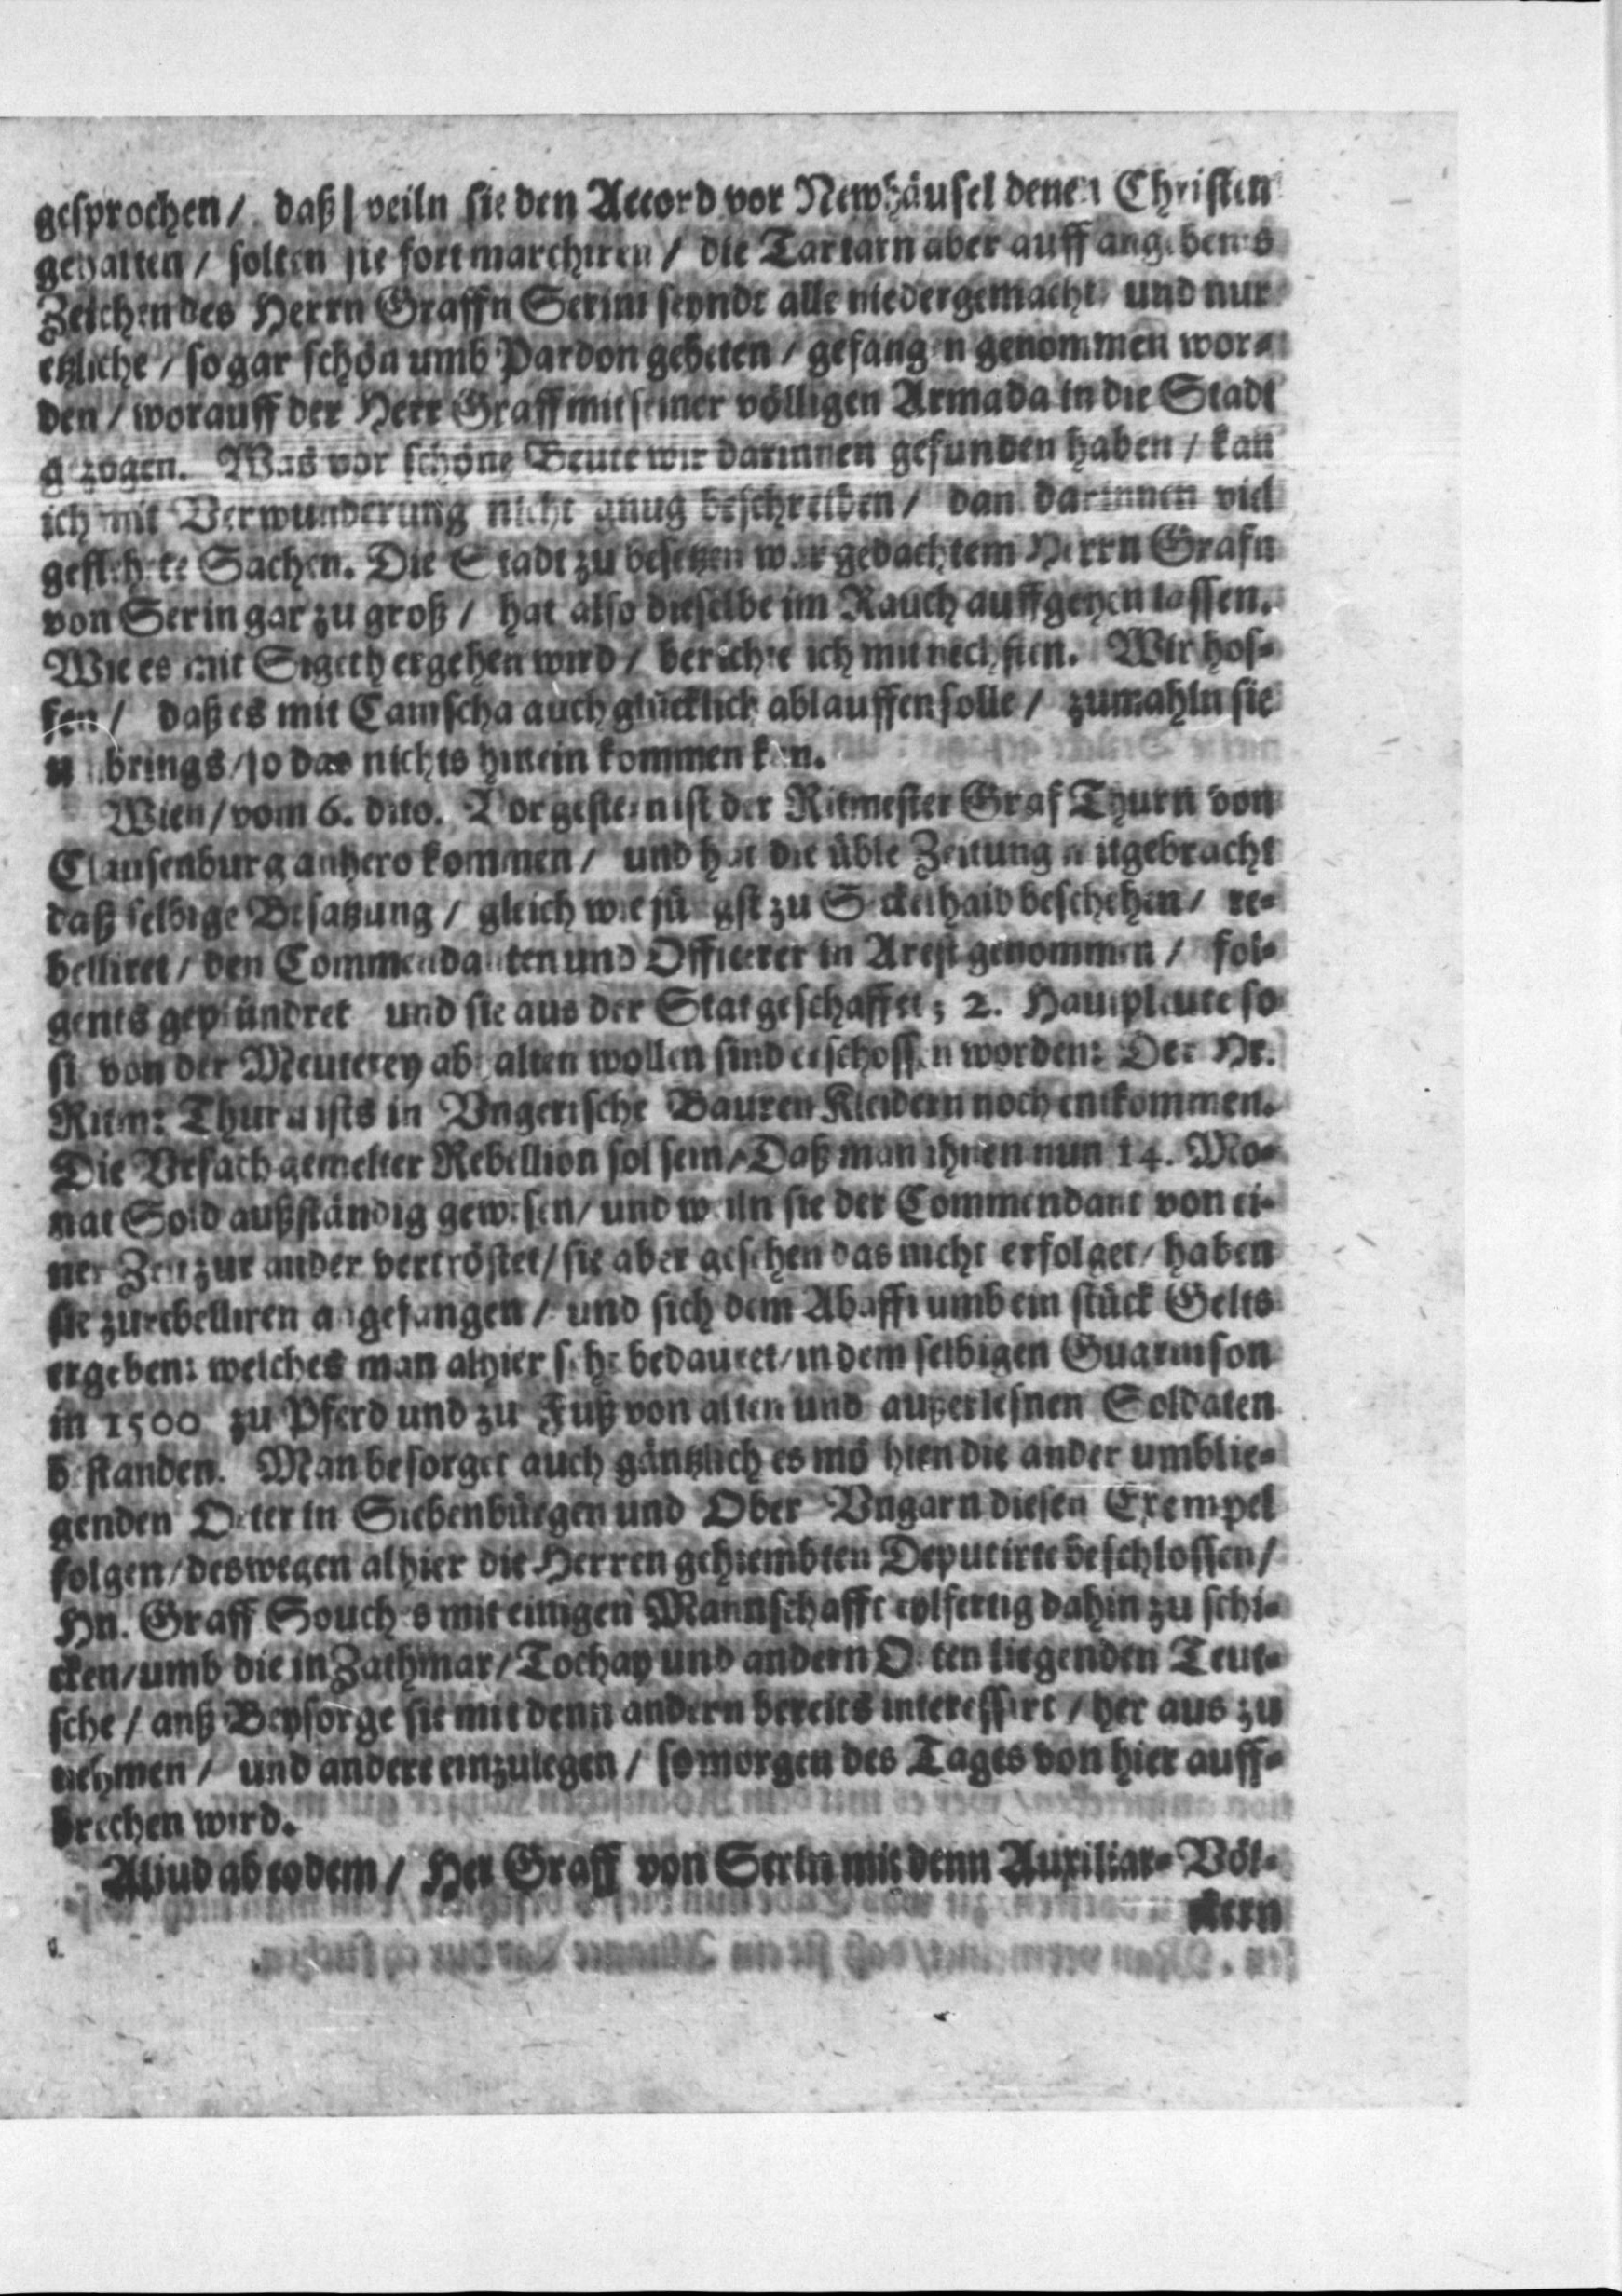 gesprochen / daß weiln sie den Accord vor Newhäusel denen Christen
gehalten / solten sie fort marchiren / die Tartarn aber auff angebenes
Zeichen des Herrn Graffn Serini seyndt alle niedergemacht / und nur
etzliche / so gar schön umb Pardon gebeten / gefangen genommen wor-
den / worauff der Herr Graff mit seiner völligen Armada in die Stadt
gezogen. Was vor schöne Beute wir darinnen gefunden haben / kan
ich mit Verwunderung nicht gnug beschreiben / dan darinnen viel
geflehete Sachen. Die Stadt zu besetzen war gedachtem Herrn Grafn
von Serin gar zu groß / hat also dieselbe im Rauch auffgehen lassen.
Wie es mit Sigeth ergehen wird / berichte ich mit nechsten. Wir hof-
fen / daß es mit Camscha auch glücklich ablauffen solle / zumahln sie
umbrings / so das nichts hinein kommen kan.
Wien / vom 6. dito. Vorgestern ist der Ritmeister Graf Thurn von
Clausenburg anhero kommen / und hat die üble Zeitung mitgebracht
daß selbige Besatzung / gleich wie jüngst zu Seckelhaid beschehen / re-
belliret / den Commendanten und Officirer in Arest genommen / fol-
gents geplündret und sie aus der Stat geschaffet; 2. Hauptleute so
sie von der Meuterey abhalten wollen sind erschossen worden: Der Hr.
Ritm: Thurn ists in Vngerische Bauren Kleidern noch entkommen.
Die Vrsach gemelter Rebellion sol sein / Daß man ihnen nun 14. Mo-
nat Sold außständig gewesen / und weiln sie der Commendant von ei-
ner Zeit zur ander vertröstet / sie aber gesehen das nicht erfolget / haben
sie zu rebelliren angefangen / und sich dem Abaffi umb ein stück Gelts
ergeben: welches man alhier sehr bedauret / in dem selbigen Guarnison
in 1500 zu Pferd und zu Fuß von alten und außerlesnen Soldaten
bestanden. Man besorget auch gäntzlich es möchten die ander umblie-
genden Oerter in Siebenbürgen und Ober Vngarn diesen Exempel
folgen / deswegen alhier die Herren gehiembten Deputirte beschlossen /
Hn. Graff Souches mit einigen Mannschafft eylfertig dahin zu schi-
cken / umb die in Zathmar / Tochay und andern Orten liegenden Teut-
sche / auß Beysorge sie mit denn andern bereits interessirt / her aus zu
nehmen / und andere einzulegen / so morgen des Tages von hier auff-
brechen wird.
Aliud ab eodem / Her Graff von Serin mit denn Auxiliar- Völ-
ckern